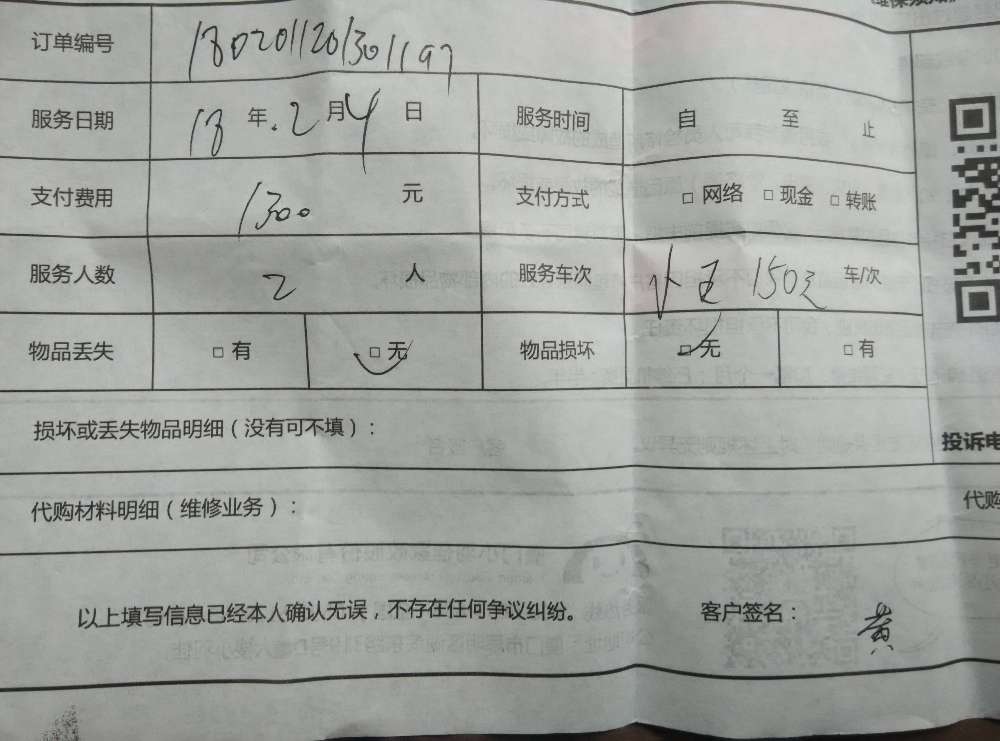 订单编号 1802011201301197
服务日期 18年.2月4日 服务时间 自 至 止
支付费用 1300 元 支付方式 □ 网络 □ 现金 □ 转账
服务人数 2 人 服务车次 150元 车/次
物品丢失 □ 有 □ 无 物品损坏 □ 无 □ 有
损坏或丢失物品明细（没有可不填）：
投诉电
代购材料明细（维修业务）：
代购
以上填写信息已经本人确认无误，不存在任何争议纠纷。 客户签名： 黄